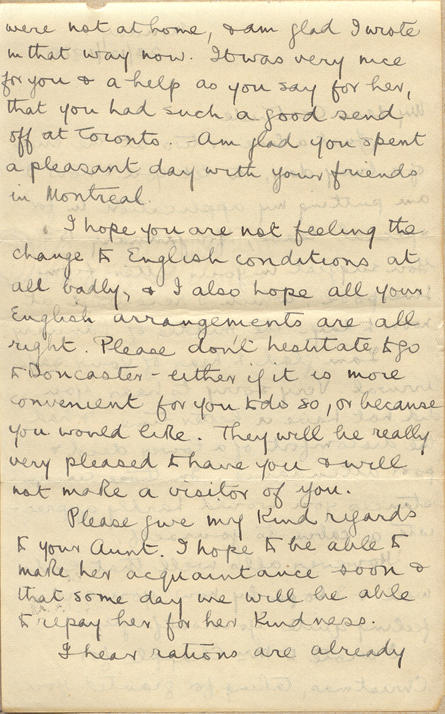 were not at home, & am glad I wrote
in that way now. It was very nice
for you & a help as you say for her,
that you had such a good send
off at Toronto. Am glad you spent
a pleasant day with your friends
in Montreal.
I hope you are not feeling the
change to English conditions at
all badly, & I also hope all your
English arrangements are all
right. Please don't hestitate to go
to Doncaster - either if it is more
convenient for you to do so, or because
you would like. They will be really
very pleased to have you & will
not make a visitor of you.
Please give my kind regards
to your Aunt. I hope to be able to
make her acquaintance soon &
that some day we will be able
to repay her for her kindness.
I hear rations are already